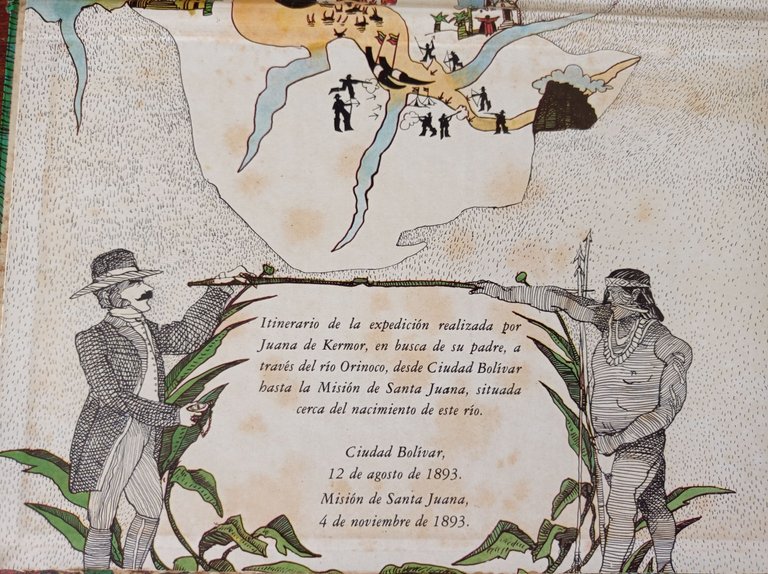 Itinerario de la expedición realizada por
Juana de Kermor, en busca de su padre, a
través del río Orinoco, desde Ciudad Bolívar
hasta la Misión de Santa Juana, situada
cerca del nacimiento de este río.
Ciudad Bolívar,
12 de agosto de 1893.
Misión de Santa Juana,
4 de noviembre de 1893.